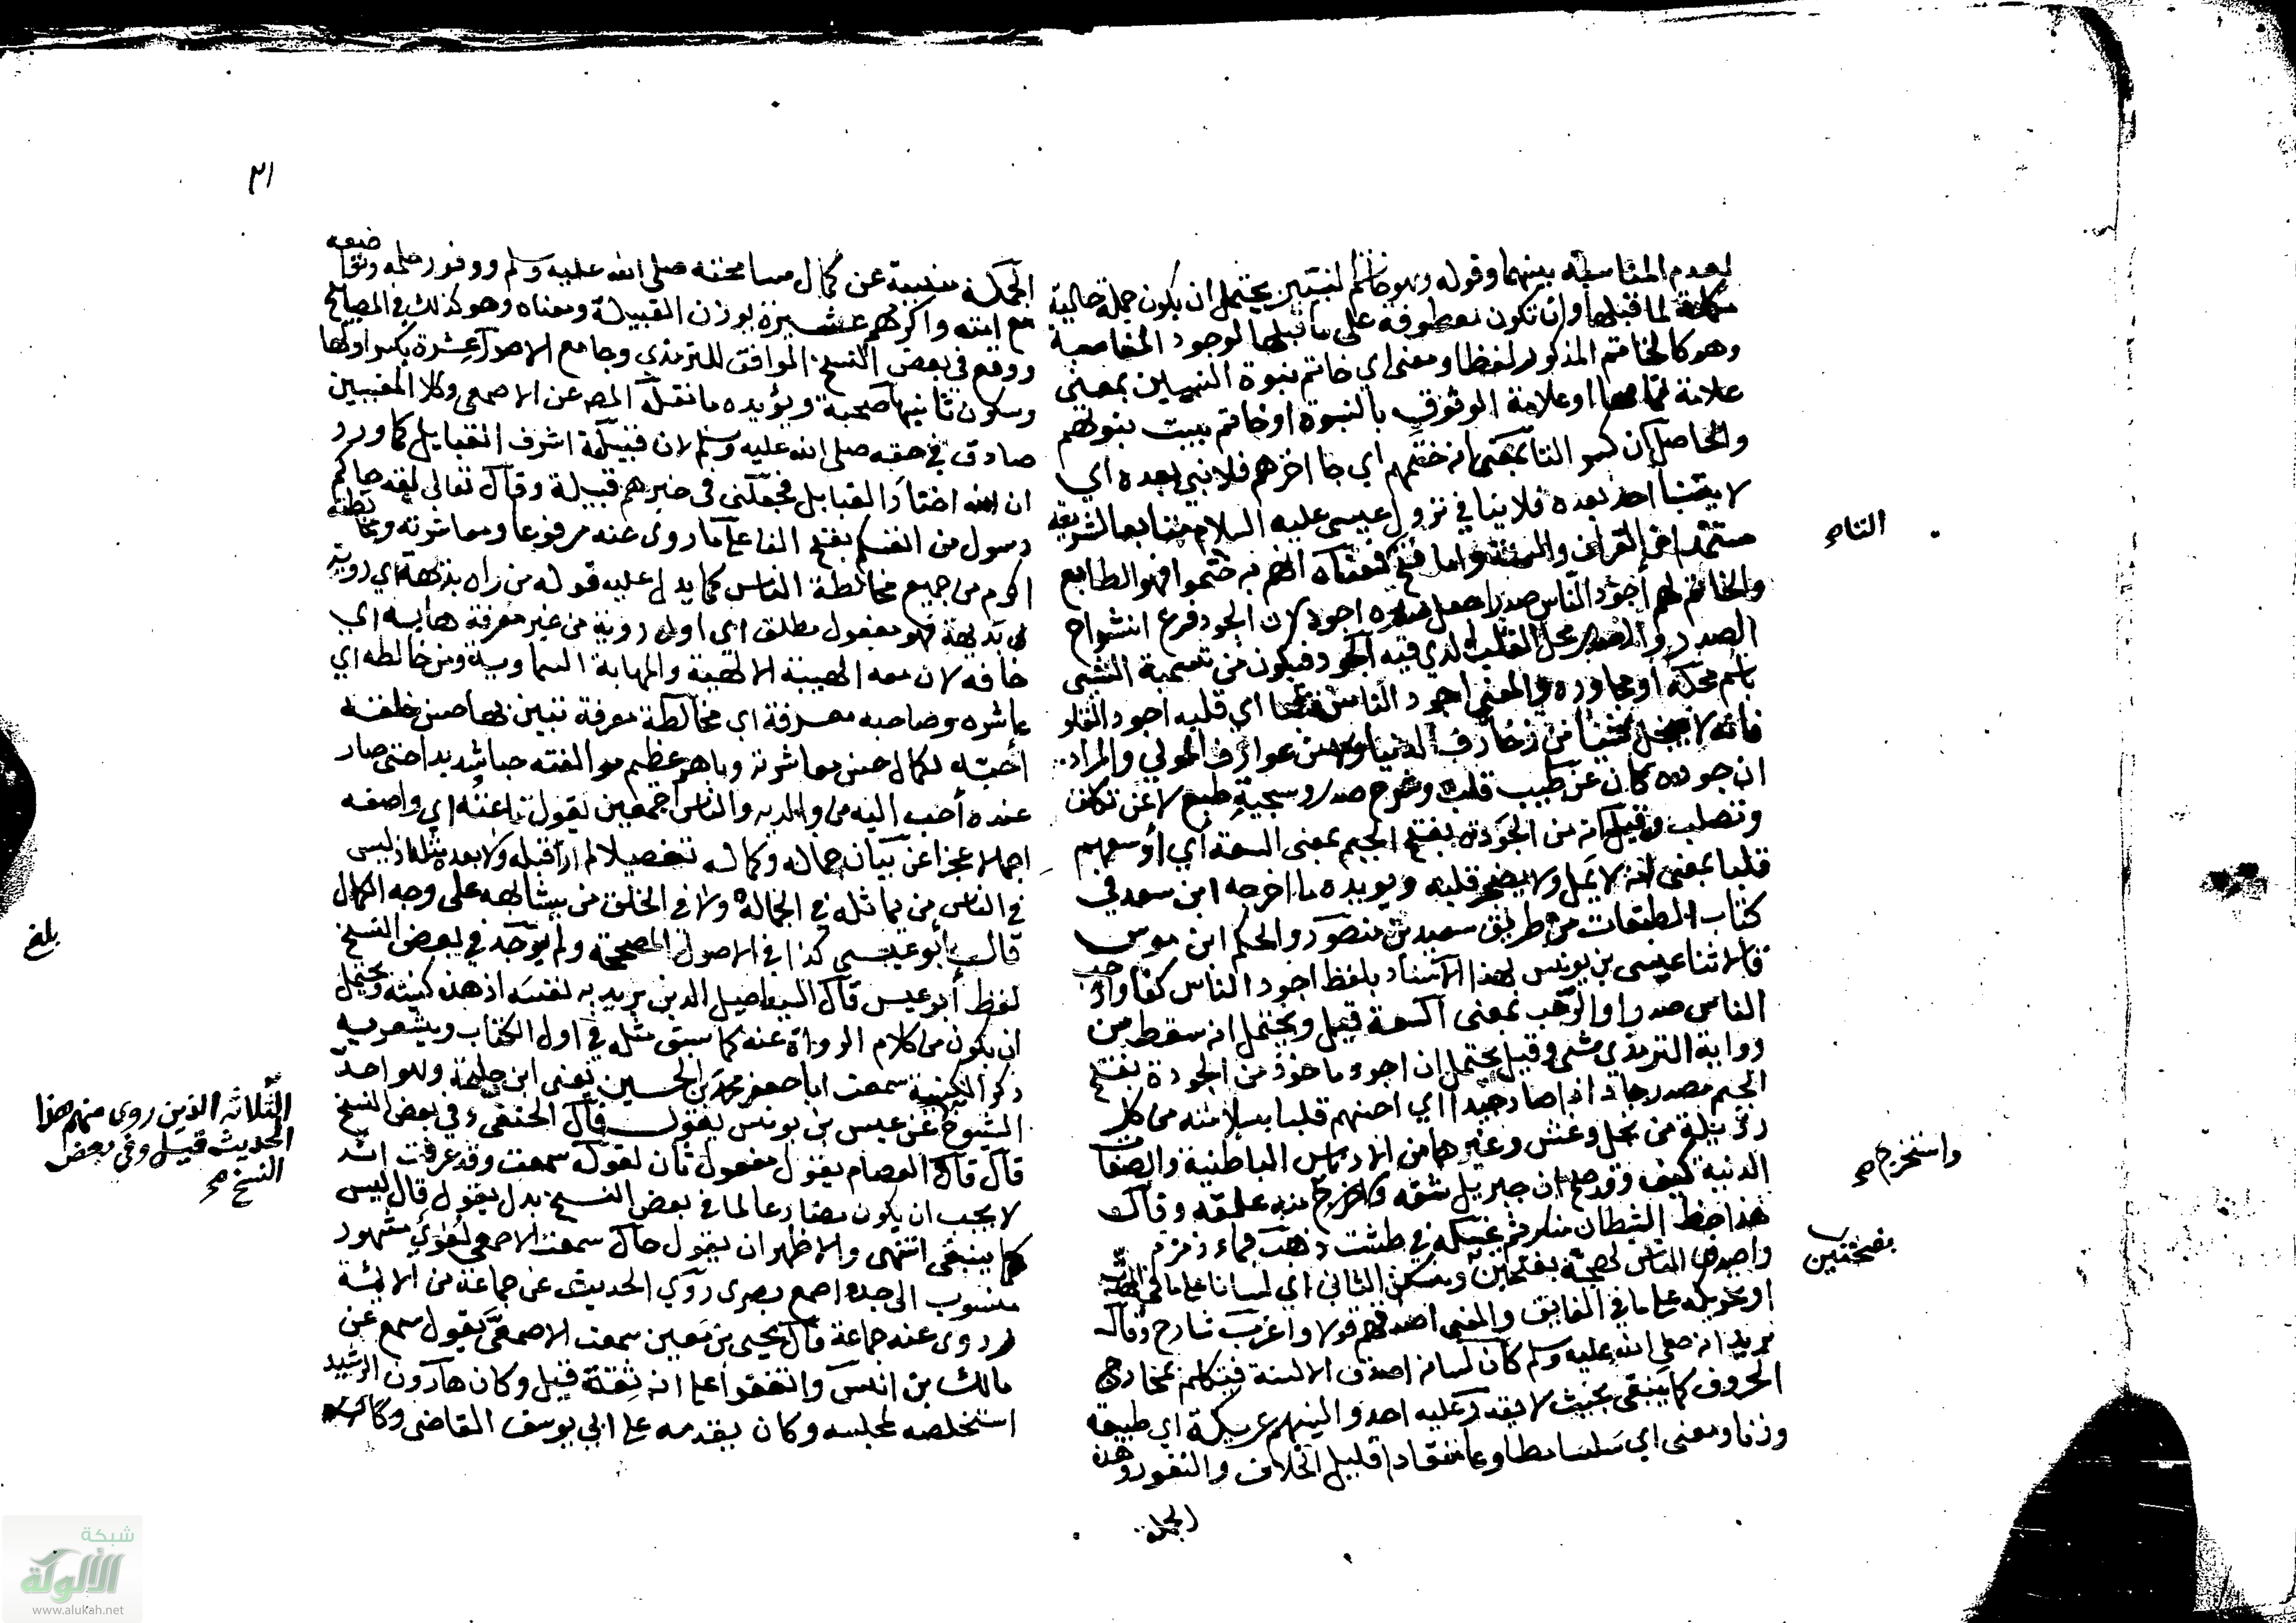 ٣١
لعدم المناسبة بينهما وقوله وهو خاتم النبيين يحتمل ان يكون جملة حالية
مكملة لما قبلها وان تكون معطوفة على ما قبلها لوجود المناسبة
وهو كالخاتم المذكور لفظا ومعنى اي خاتم نبوة النبيين بمعنى
علامة تمامها او علامة الوثوق بالنبوة او خاتم ببيت نبوتهم
والحاصل ان كسر التا بمعنى انه ختمهم اي جا اخرهم فلا نبي بعده اي
لا يتنبأ احد بعده فلا ينافي نزول عيسى عليه السلام متابعا لشريعته
مستمدا من القران والسنة واما فتح فمعناه انهم به ختموا فهو الطابع
والخاتم لهم أجود الناس صدرا جعل صدره اجود لان الجود فرع انشراح
الصدر والصدر محل القلب الذي فيه الجود فيكون من تسمية الشي
باسم محله او مجاوره والمعنى اجود الناس قلبا اي قلبه اجود القلو
فانه لا يبخل شيئا من زخارف الدنيا ولا من عوارف المولي والمراد
ان جوده كان عن طيب قلب وشرح صدر وسجية طبع لا عن تكلف
وتصلب وقيل انه من الجودة بفتح الجيم بمعنى السعة أي أوسعهم
قلبا بمعنى انه لا يمل ولا يضجر قلبه ويويده ما اخرجه ابن سعد في
كتاب الطبقات من طريق سعيد بن منصور والحكم ابن موسى
قالا ثنا عيسى بن يونس بهذا الاسناد بلفظ اجود الناس كفا وارحب
الناس صدرا والرحب بمعنى السعة قيل ويحتمل انه سقط من
رواية الترمذي شي وقيل يحتمل ان اجود ماخوذ من الجودة بفتح
الجيم مصدر جاد اذا صار جيدا اي احسنهم قلبا بسلامته من كل
رذيلة من بخل وغش وغيرهما من الادناس الباطنية والصفات
الدنية كيف وقد صح ان جبريل شقه واخرج منه علقة وقال
هذا حظ الشيطان منك ثم غسله في طشت ذهب بماء زمزم
واصدق الناس لهجة بفتحتين وسكن الثاني اي لسانا على ما في المهذب
او نحويله على ما في الفايق والمعنى اصدقهم قولا واغرب شارح وقال
يريد انه صلى الله عليه وسلم كان لسانه اصدق الالسنة فيتكلم بمخارج
الحروف كما ينبغي بحيث لا يقدر عليه احد والينهم عريكة اي طبيعة
وزنا ومعنى اي سلسا مطاوعا منقادا قليل الخلاف والنفور وهذه
الجملة
التاء صح
واستخرج صح
بفتحتين
الجملة منبية عن كمال مسامحته صلى الله عليه وسلم ووفور حلمه وتواضعه
مع امته واكرمهم عشيرة بوزن القبيلة ومعناه وهو كذلك في المصابيح
ووقع في بعض النسخ الموافق للترمذي وجامع الاصول عشرة بكسر اولها
وسكون ثانيها صحبة ويؤيده ما نقله المص عن الاصمعي وكلا المعنيين
صادق في حقه صلى الله عليه وسلم لان قبيلته اشرف القبايل كما ورد
ان الله اختار القبايل فجعلني في خيرهم قبيلة وقال تعالى لقد جاكم
رسول من انفسكم بفتح الفا على ما روي عنه مرفوعا ومعاشرته ومخالطته
اكرم من جميع مخالطة الناس كما يدل عليه قوله من راه بديهة اي روية
لى بديهة فهو مفعول مطلق اي اول روية من غير معرفة هابه اي
خافه لان معه الهيبة الالهية والمهابة السماوية ومن خالطه اي
عاشره وصاحبه معرفة اي مخالطة معرفة تبين بها حسن خلقه
أحبه لكمال حسن معاشرته وباهر عظيم موالفته حبا شديدا حتى صار
عنده أحب اليه من والديه والناس اجمعين يقول ناعته اي واصفه
اجمالا عجزا عن بيان جماله وكماله تفصيلا لم ار قبله ولا بعده مثله اذ ليس
في الناس من يماثله في الجمالة ولا في الخلق من يشابهه على وجه الكمال
قال أبو عيسى كذا في الاصول المصححة ولم يوجد في بعض النسخ
لفظ أبو عيسى قال السيد اصيل الدين يريد به نفسه اذ هذه كنيته ويحتمل
ان يكون من كلام الرواة عنه كما سبق مثله في اول الكتاب ويشعر به
ذكر الكنية سمعت ابا جعفر محمد بن الحسين يعني ابن حليمة وهو احد
الشيوخ عن عيسى بن يونس يقول قال الحنفي وفي بعض النسخ
قال قال العصام يقول مفعول ثان لقوله سمعت وقد عرفت انه
لا يجب ان يكون مضارعا لما في بعض النسخ بدل يقول قال ليس
كما ينبغي انتهى والاظهر ان يقول حال سمعت الاصمعي لغوي مشهور
منسوب الى جده اصمع بصرى روي الحديث عن جماعة من الائمة
وروى عنه جماعة قال يحيى بن معين سمعت الاصمعي يقول سمع عن
مالك بن انس واتفقوا على انه ثقة قيل وكان هارون الرشيد
استخلصه لمجلسه وكان يقدمه على ابي يوسف القاضي وكان
بلغ
الثلاثه الذين روى منهم هذا
الحديث قيل وفي بعض
النسخ صح
شبكة
الألوكة
www.alukah.net